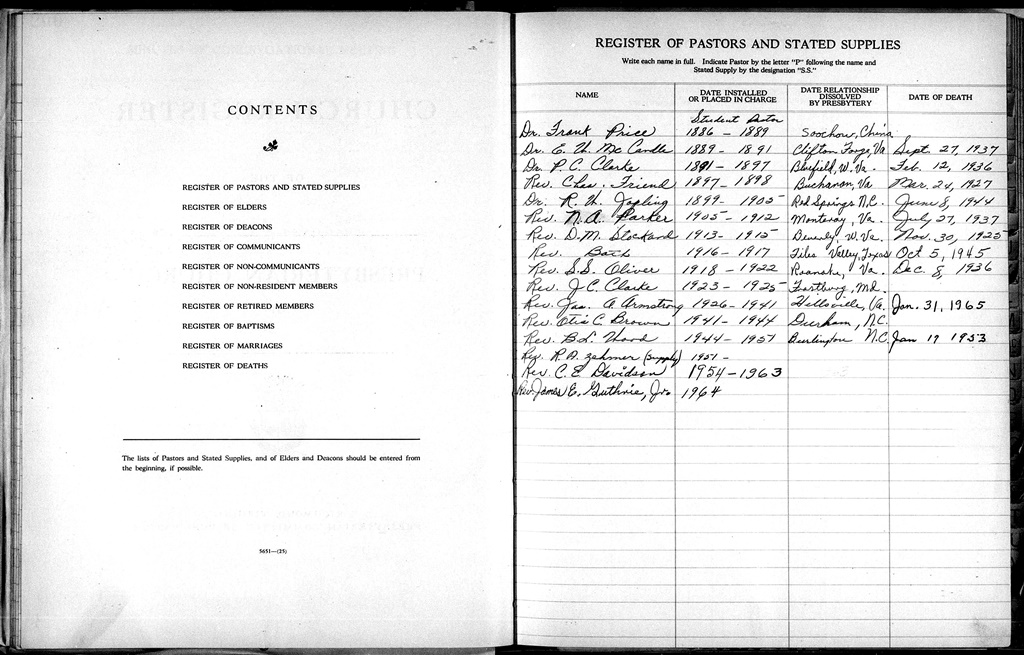 CONTENTS
REGISTER OF PASTORS AND STATED SUPPLIES
REGISTER OF ELDERS
REGISTER OF DEACONS
REGISTER OF COMMUNICANTS
REGISTER OF NON-COMMUNICANTS
REGISTER OF NON-RESIDENT MEMBERS
REGISTER OF RETIRED MEMBERS
REGISTER OF BAPTISMS
REGISTER OF MARRIAGES
REGISTER OF DEATHS
The lists of Pastors and Stated Supplies, and of Elders and Deacons should be entered from
the beginning, if possible.
5651—(25)
REGISTER OF PASTORS AND STATED SUPPLIES
Write each name in full. Indicate Pastor by the letter "P" following the name and
Stated Supply by the designation "S.S."
NAME DATE INSTALLED OR PLACED IN CHARGE DATE RELATIONSHIP DISSOLVED BY PRESBYTERY DATE OF DEATH
Student Pastor
Dr. Frank Price 1886 - 1889 Soochow, China
Dr. E. W. Mc Corkle 1889 - 1891 Clifton Forge, Va Sept. 27, 1937
Dr. P. C. Clarke 1891 - 1897 Bluefield, W. Va. Feb. 12, 1936
Rev. Chas. Friend 1897 - 1898 Buchanan, Va Mar. 24, 1927
Dr. R. W. Jopling 1899 - 1905 Red Springs N.C. June 8, 1944
Rev. N. A. Parker 1905 - 1912 Monterey, Va. July 27, 1937
Rev. D. M. Stockard 1913 - 1915 Beverly, W. Va. Nov. 30, 1925
Rev. 1916 - 1917 Valley, Texas Oct 5, 1945
Rev. S. S. Oliver 1918 - 1922 Roanoke, Va. Dec. 8, 1936
Rev. J. C. Clarke 1923 - 1925 Md.
Rev. Jas. A Armstrong 1926 - 1941 Hillsville, Va. Jan. 31, 1965
Rev. Otis C. Brown 1941 - 1944 Durham, N.C.
Rev. B. L. Wood 1944 - 1951 Burlington N.C. Jan 19 1953
Rev. R. A. Zehmer (supply) 1951 -
Rev. C. E. Davidson 1954 - 1963
Rev. James E. Guthrie, Jr. 1964